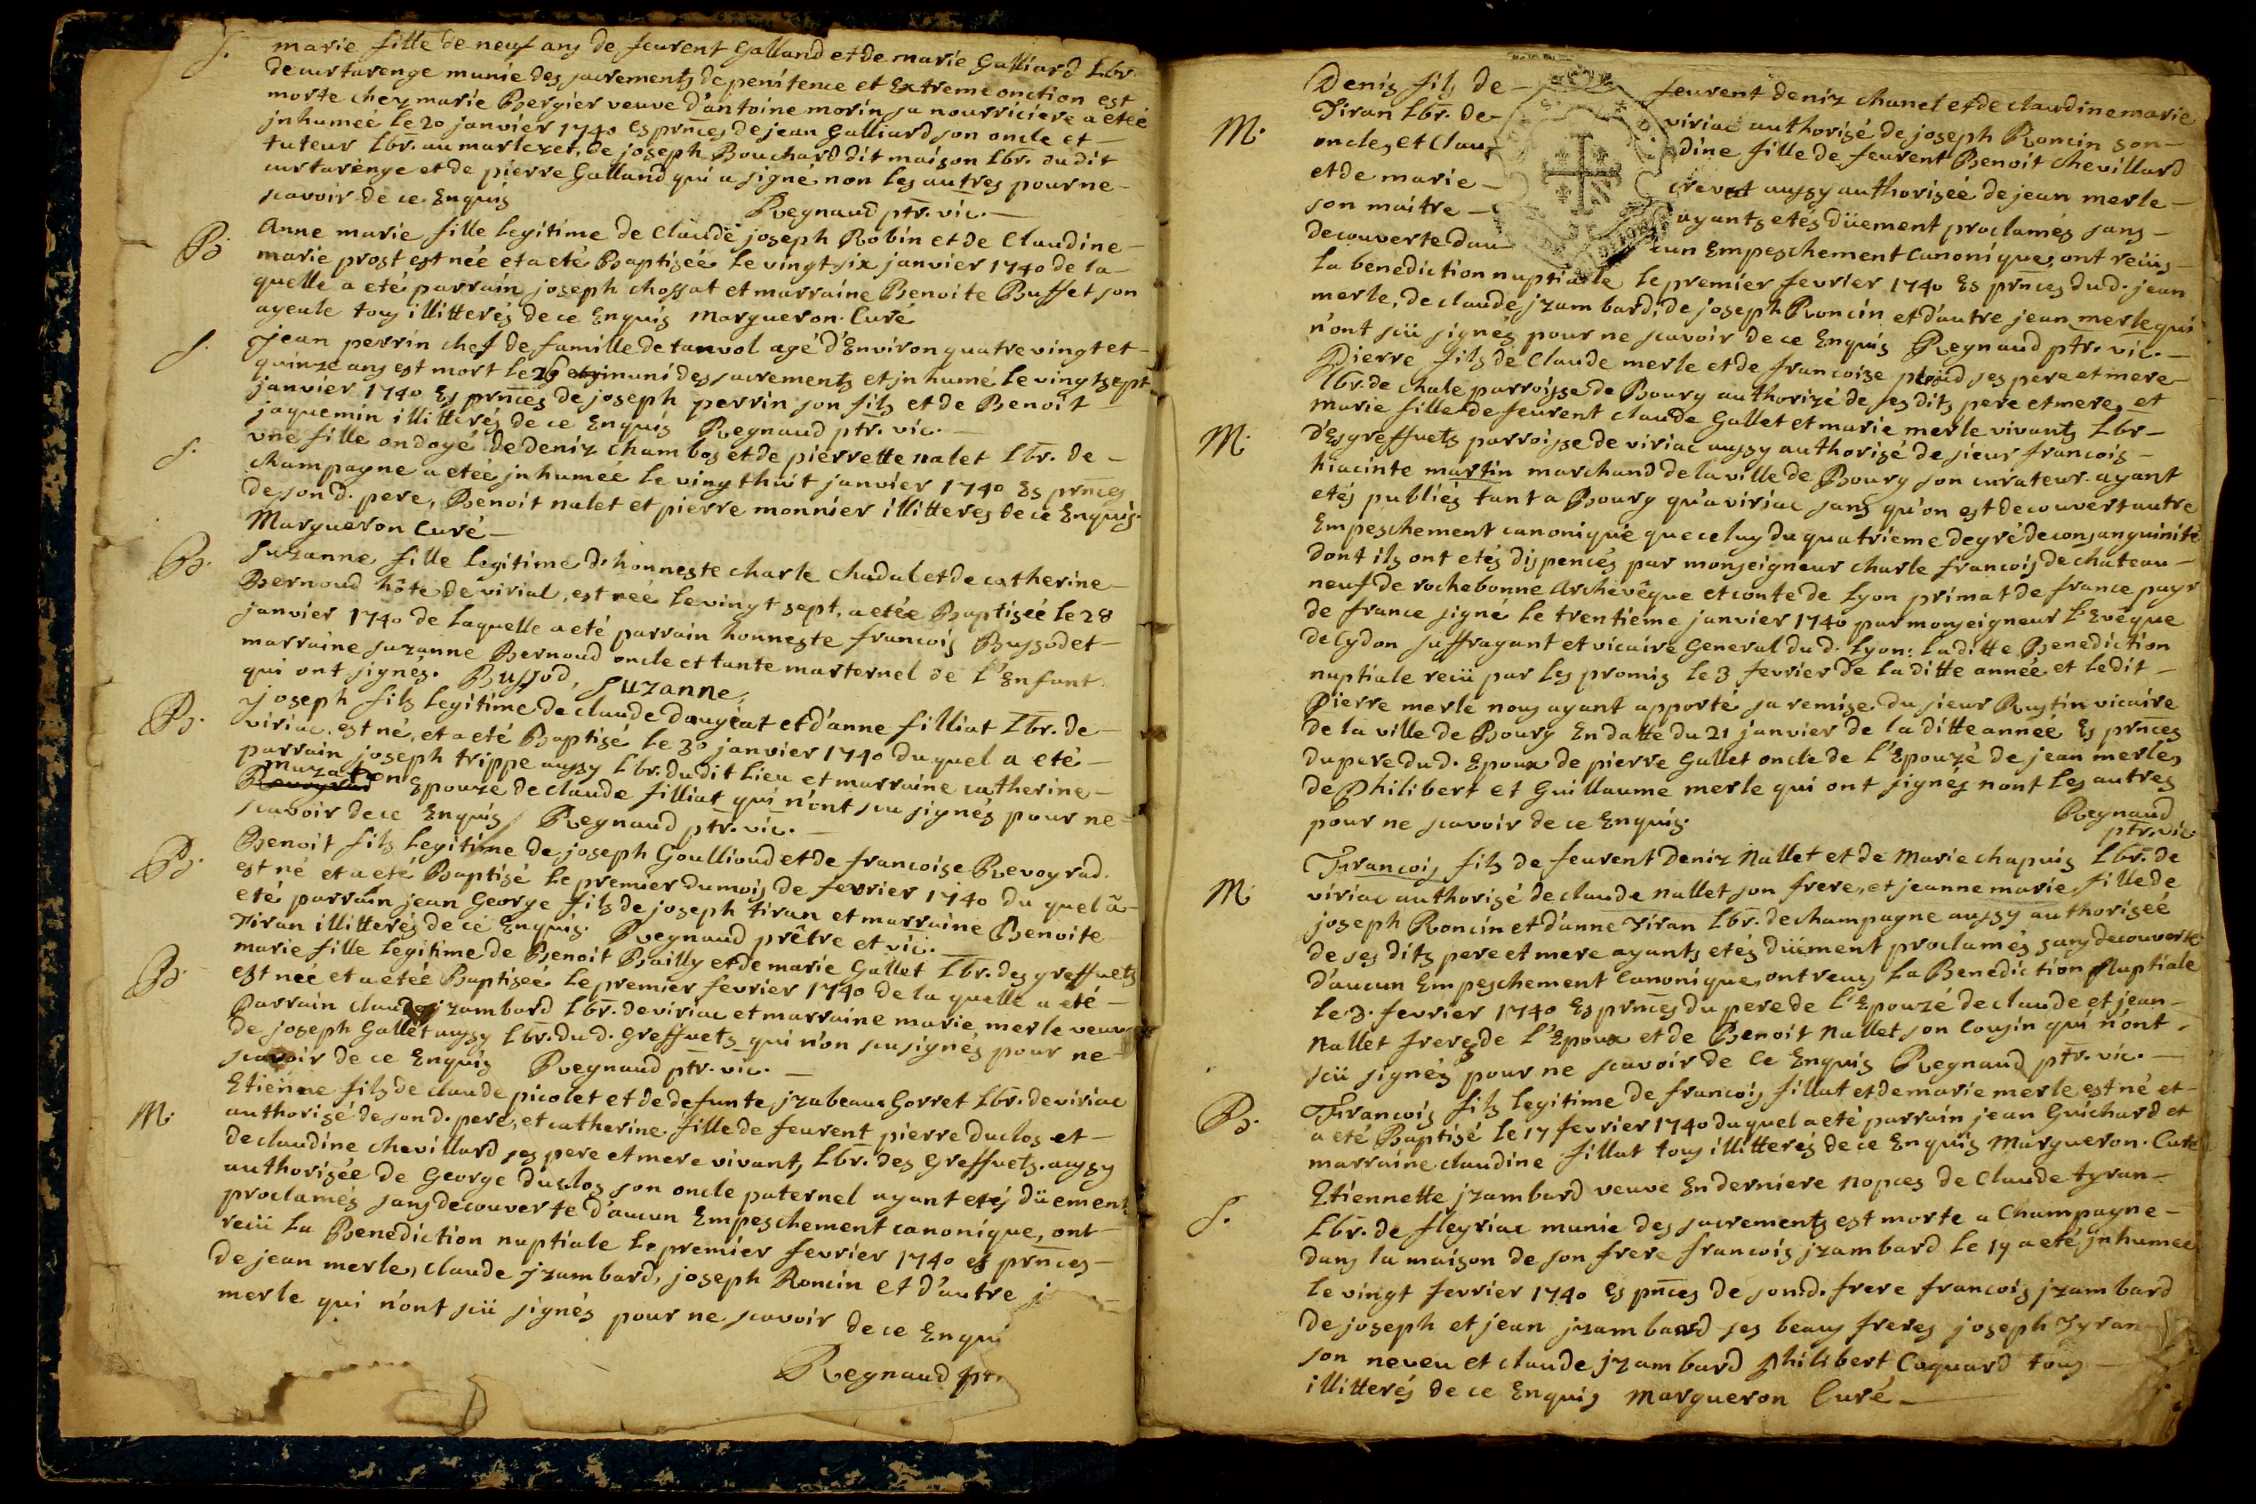 S. marie fille de neuf ans de feurent Galland et de marie Galliard Lbr.
de curtarenge munie des sacrements de penitence et Extreme onction est
morte chez marie Bergier veuve d'antoine morin sa nourriciere a eteé
jnhumeé le 20 janvier 1740 Es prnces de jean Galliard son oncle et
tuteur Lbr. au marlezet, de joseph Bouchard dit maison Lbr. dudit
curtarenge et de pierre Galland qui a signé non les autres pour ne
scavoir de ce Enquis Regnaud ptr. vic.
B. Anne marie fille legitime de Claude joseph Robin et de Claudine
marie prost est néé et a eté Baptiseé le vingt six janvier 1740 de la
quelle a eté parrain joseph chossat et marraine Benoite Buffet son
ayeule tous illitterés de ce Enquis Margueron. Curé
S. jean perrin chef de famille de tanvol agé d'Environ quatre vingt et
quinze ans est mort le 26 muni des sacrements et jnhumé le vingt sept
janvier 1740 Es prnces de joseph perrin son fils et de Benoit
jaquemin illitterés de ce Enquis Regnaud ptr. vic.
S. vne fille ondoyé de deniz chambos et de pierrette nalet Lbr. de
champagne a eteé jnhumeé le vingt huit janvier 1740 Es prnces
de son d. pere, Benoit nalet et pierre monnier illitteres de ce Enquis.
Margueron Curé
B. Suzanne fille legitime d'honneste charle chadal et de catherine
Bernoud hôte de viriat, est néé le vingt sept, a eteé Baptiseé le 28
janvier 1740 de laquelle a eté parrain honneste francois Bussod et
marraine suzanne Bernoud oncle et tante marternel de l'Enfant
qui ont signés. Bussod, suzanne,
B. joseph fils legitime de claude daugeat et d'anne filliat Lbr. de
viriac, est né, et a eté Baptisé le 30 janvier 1740 du quel a eté
parrain joseph trippe aussy Lbr. dudit Lieu et marraine catherine
muzaton
Revoyrad Epouze de claude filliat qui n'ont scu signés pour ne
scavoir de ce Enquis Regnaud ptr. vic.
B. Benoit fils legitime de joseph Goullioud et de francoise Revoyrad.
est né et a eté Baptisé le premier du mois de fevrier 1740 du quel ã
eté parrain jean George fils de joseph tiran et marraine Benoite
Tiran illitterés de ce Enquis. Regnaud prêtre et vic.
B. marie fille legitime de Benoit Bailly et de marie Gallet Lbr. des greffuets
est neé et a eteé Baptiseé le premier fevrier 1740 de la quelle a eté
parrain claude jzambard Lbr. de viriac et marraine marie merle veuve
de joseph Gallet aussy Lbr. du d. Greffuets qui n'on scu signés pour ne
scavoir de ce Enquis Regnaud ptr. vic.
M. Etienne fils de claude picolet et de defunte jzabeau Gorret Lbr. de viriac
authorisé de son d. pere, et catherine fille de feurent pierre duclos et
de claudine chevillard ses pere et mere vivant, Lbr. des Greffuets. aussy
authorisée de George duclos son oncle paternel ayant etés düement
proclamés sans decouverte d'aucun Empeschement canonique, ont
reçu La Benediction nuptiale le premier fevrier 1740 es prnces
de jean merle, claude jzambard, joseph Roncin et d'autre j
merle qui n'ont scü signés pour ne scavoir de ce Enqui
Regnaud ptr.
M. Denis fils de feurent deniz chanel et de claudine marie
Tiran Lbr. de viriac authorisé de joseph Roncin son
oncle, et Clau dine fille de feurent Benoit chevillard
et de marie crevat aussy authoriseé de jean merle
son maitre ayants etés düement proclamés sans
decouverte dau cun Empeschement canonique, ont reçus
La benediction nuptialle le premier fevrier 1740 Es prnces du d. jean
merle, de claude jzambard, de joseph Roncin et d'autre jean merle qui
n'ont scü signés pour ne scavoir de ce Enquis Regnaud ptr. vic.
M. Pierre fils de Claude merle et de francoise ses pere et mere
Lbr. de chale parroisse de Bourg authorizé de ses dits pere et mere, et
marie fille de feurent claude Gallet et marie merle vivants Lbr
d'Es greffuets parroisse de viriac aussy authorisé de sieur francois
hiacinte martin marchand de la ville de Bourg son curateur. ayant
etés publiés tant a Bourg qu'a viriac sans qu'on est decouvert autre
Empeschement canonique que celuy du quatrieme degré de consanguinité
dont ils ont etés dispencés par monseigneur charle francois de chateau
neuf de rochebonne Archevêque et conte de Lyon primat de france payr
de france signé le trentieme janvier 1740 par monseigneur l'Evêque
de Cydon suffragant et vicaire General du d. Lyon: la ditte Benediction
nuptiale reçü par les promis le 3 fevrier de la ditte année et ledit
Pierre merle nous ayant apporté sa remise du sieur Rustin vicaire
de la ville de Bourg En datte du 21 janvier de la ditte année Es prnces
du pere du d. Epoux de pierre Gallet oncle de l'Epouzé de jean merle,
de Philibert et Guillaume merle qui ont signés nont les autres
pour ne scavoir de ce Enquis. Regnaud
ptr. vic
M. Francois fils de feurent deniz Nallet et de Marie chapuis Lbr. de
viriac authorisé de claude nallet son frere, et jeanne marie fille de
joseph Roncin et d'anne Tiran Lbr. de champagne aussy authoriseé
de ses dits pere et mere ayants etés düement proclamés sans decouverte
d'aucun Empeschement canonique, ont reçus La Benediction Nuptiale
le 3. fevrier 1740 Es prnces du pere de l'Epouzé de claude et jean
Nallet freres de l'Epoux et de Benoit Nallet son cousin qui n'ont
scü signés pour ne scavoir de ce Enquis Regnaud ptr. vic.
B. Francois fils legitime de francois fillat et de marie merle est né et
a eté Baptisé le 17 fevrier 1740 du quel a eté parrain jean Guichard et
marraine claudine fillat tous illitterés de ce Enquis Margueron. Curé
S. Etiennette jzambard veuve En derniere nopces de Claude tyran
Lbr. de fleyriac munie des sacrements est morte a Champagne
dans la maison de son frere francois jzambard le 19 a eté jnhumeé
le vingt fevrier 1740 Es pnces de son d. frere francois jzambard
de joseph et jean jzambard ses beaus freres joseph Tyran
son neveu et claude jzambard Philibert Coquard tous
illitterés de ce Enquis Margueron Curé